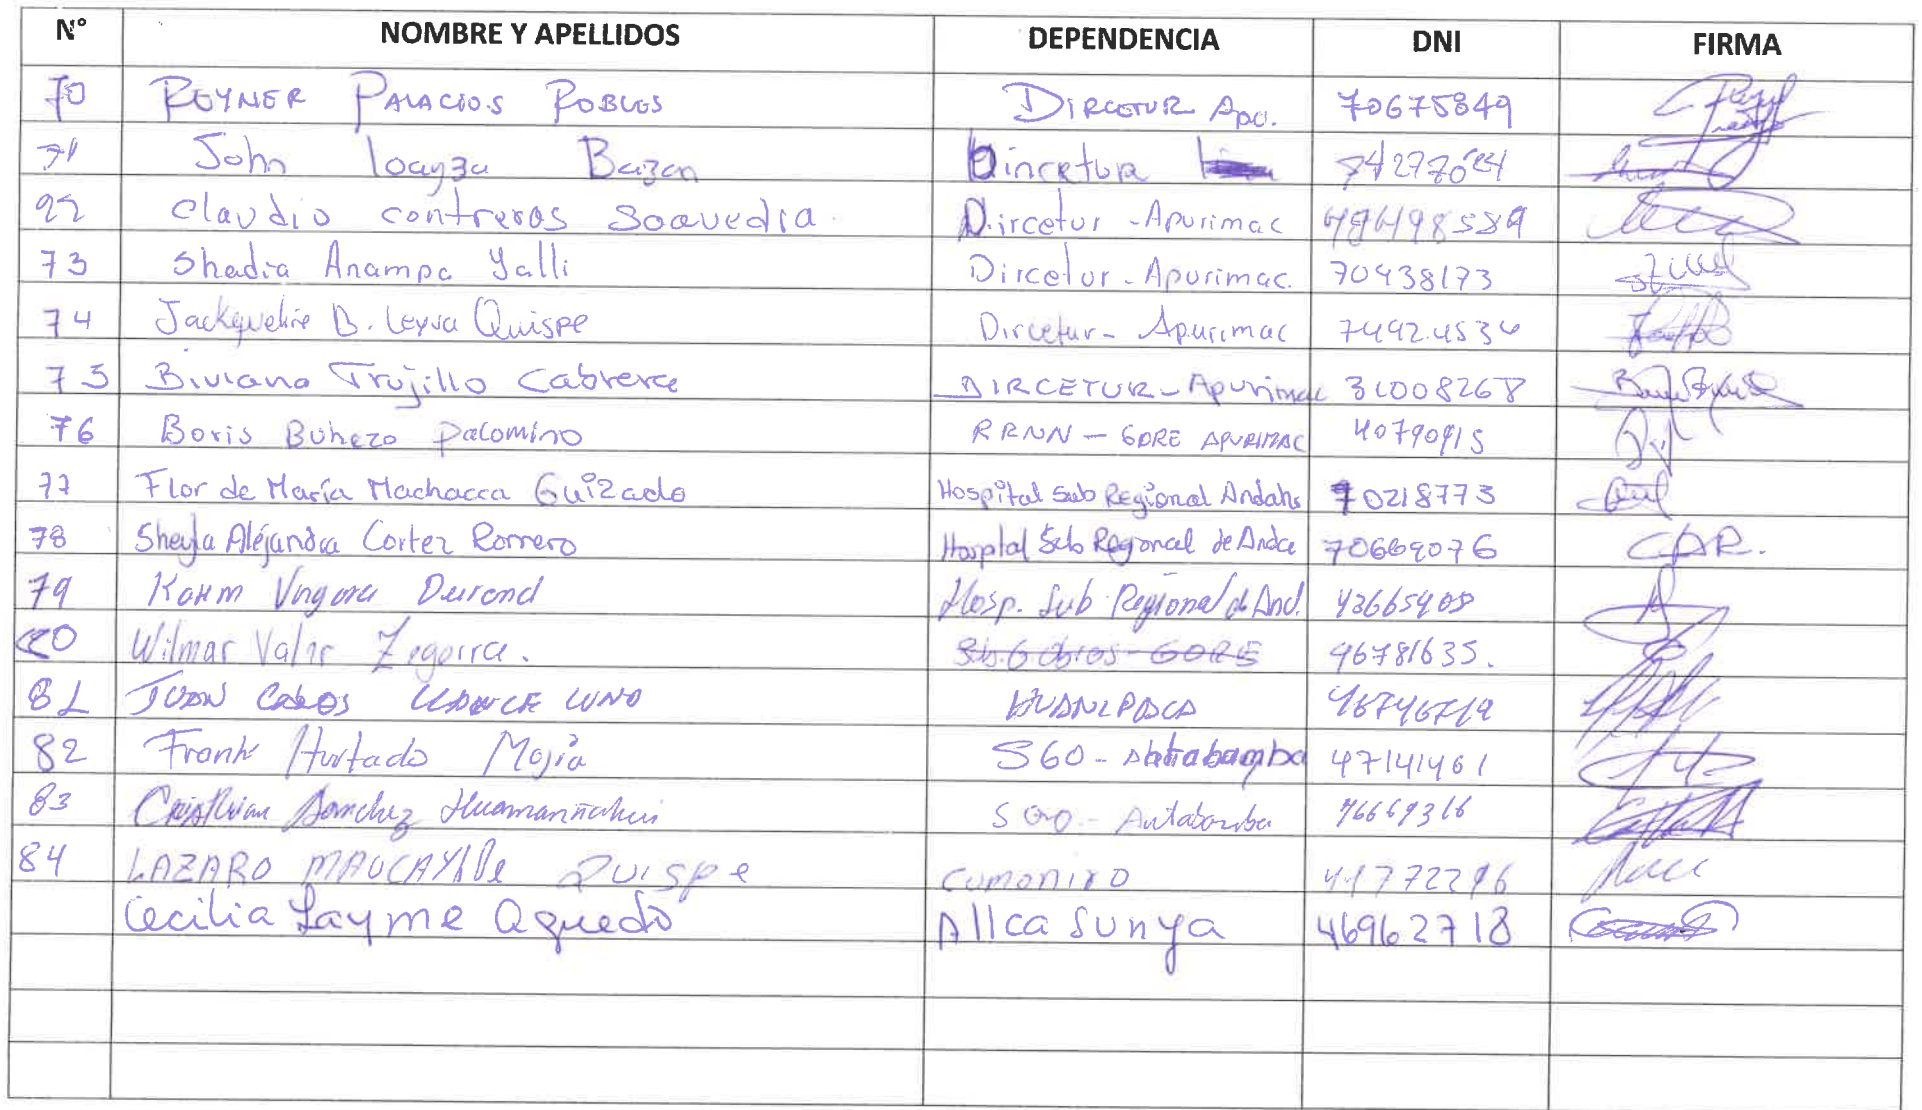 N° NOMBRE Y APELLIDOS DEPENDENCIA DNI FIRMA
70 ROYNER PALACIOS ROBLES DIRCETUR Apu. 70675849
71 John loayza Bazan Dincetur
claudio contreras Saavedra Dircetur - Apurimac
73 Shadia Anampa Yalli Dircetur - Apurimac. 70438173
74 Jackqueline B. Leyva Quispe Dircetur - Apurimac
75 Biviana Trujillo Cabrera DIRCETUR - Apurimac 31008268
76 Boris Buhezo Palomino RRNN - GORE APURIMAC
77 Flor de María Machacca Guizado Hospital Sub Regional Andahs 70218773
78 Sheyla Alejandra Cortez Romero Hospital Sub Regional de Anda 70669076 CAR.
79 Karim Vngara Durand Hosp. Sub Regional de And. 43665408
80 Wilmar Valer Zegarra. Sub.G Obras - GORE 46781635.
81 JUAN Carlos HUANIPACA
82 Frank Hurtado Mejia SGO - Antabamba 47141461
83 Sanchez SGO - Antabamba 76669316
84 LAZARO QUISPE
Cecilia Layme Aguedo Allca Sunya 46962718